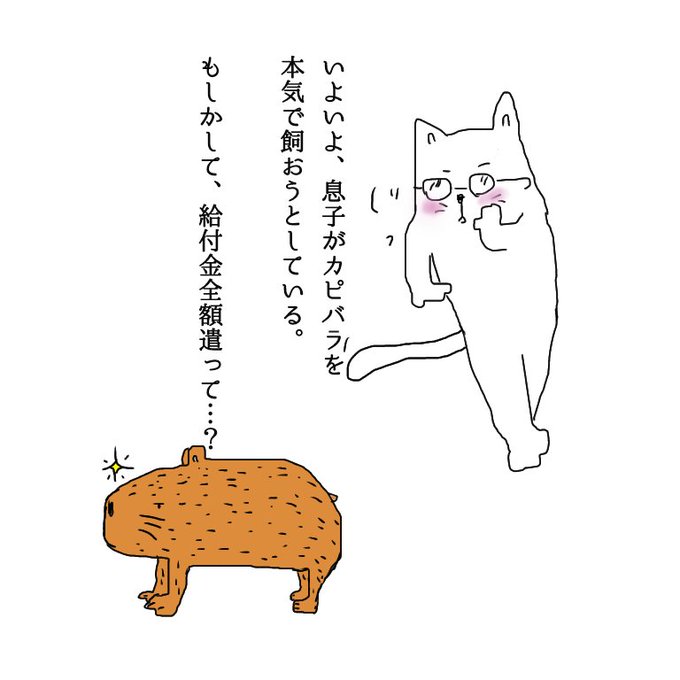 いよいよ、息子がカピバラを
本気で飼おうとしている。
もしかして、給付金全額遣って…?